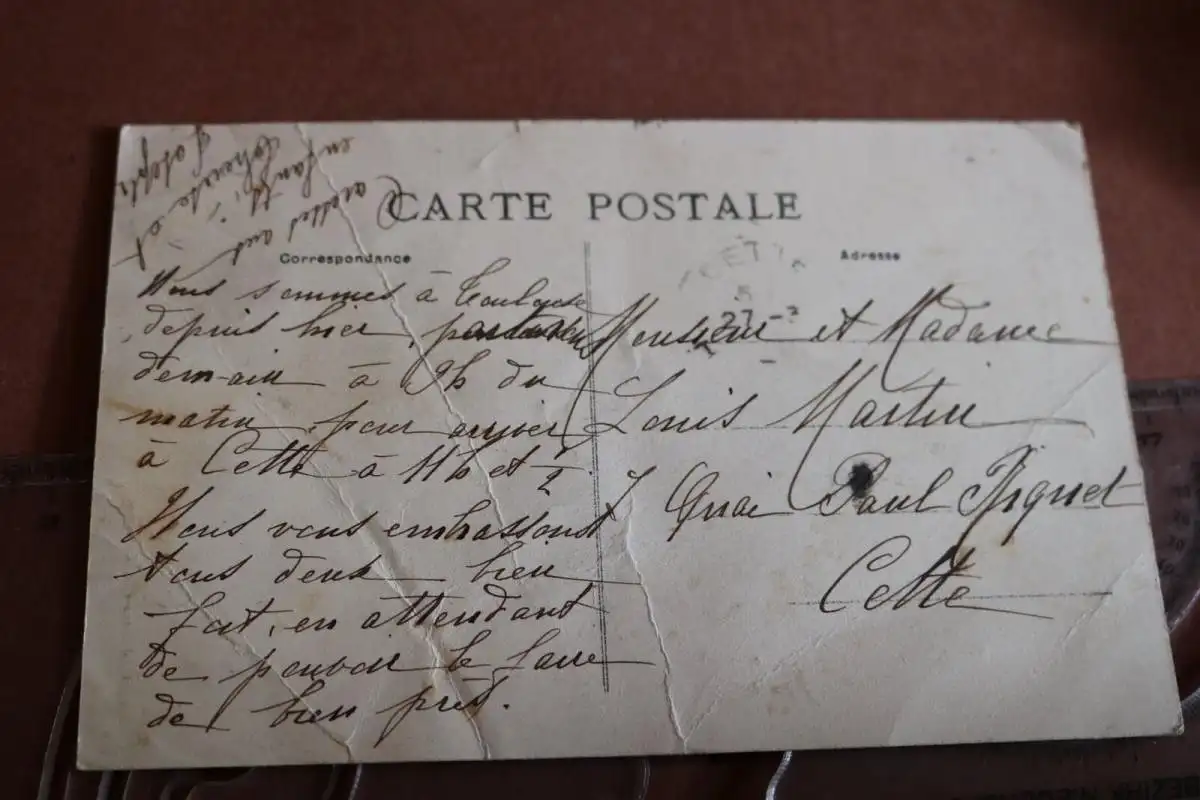 CARTE POSTALE
Correspondance
Adresse
Nous sommes à Toulouse
depuis hier,
demain à 9h du
matin, pour arriver
à Cette à 11h et 1/2.
Nous vous embrassons
tous deux bien
fort, en attendant
de pouvoir le faire
de bien près.
enfants
et
Joseph
CETTE
27 -
Monsieur et Madame
Louis Martin
7 Quai Paul Riquet
Cette